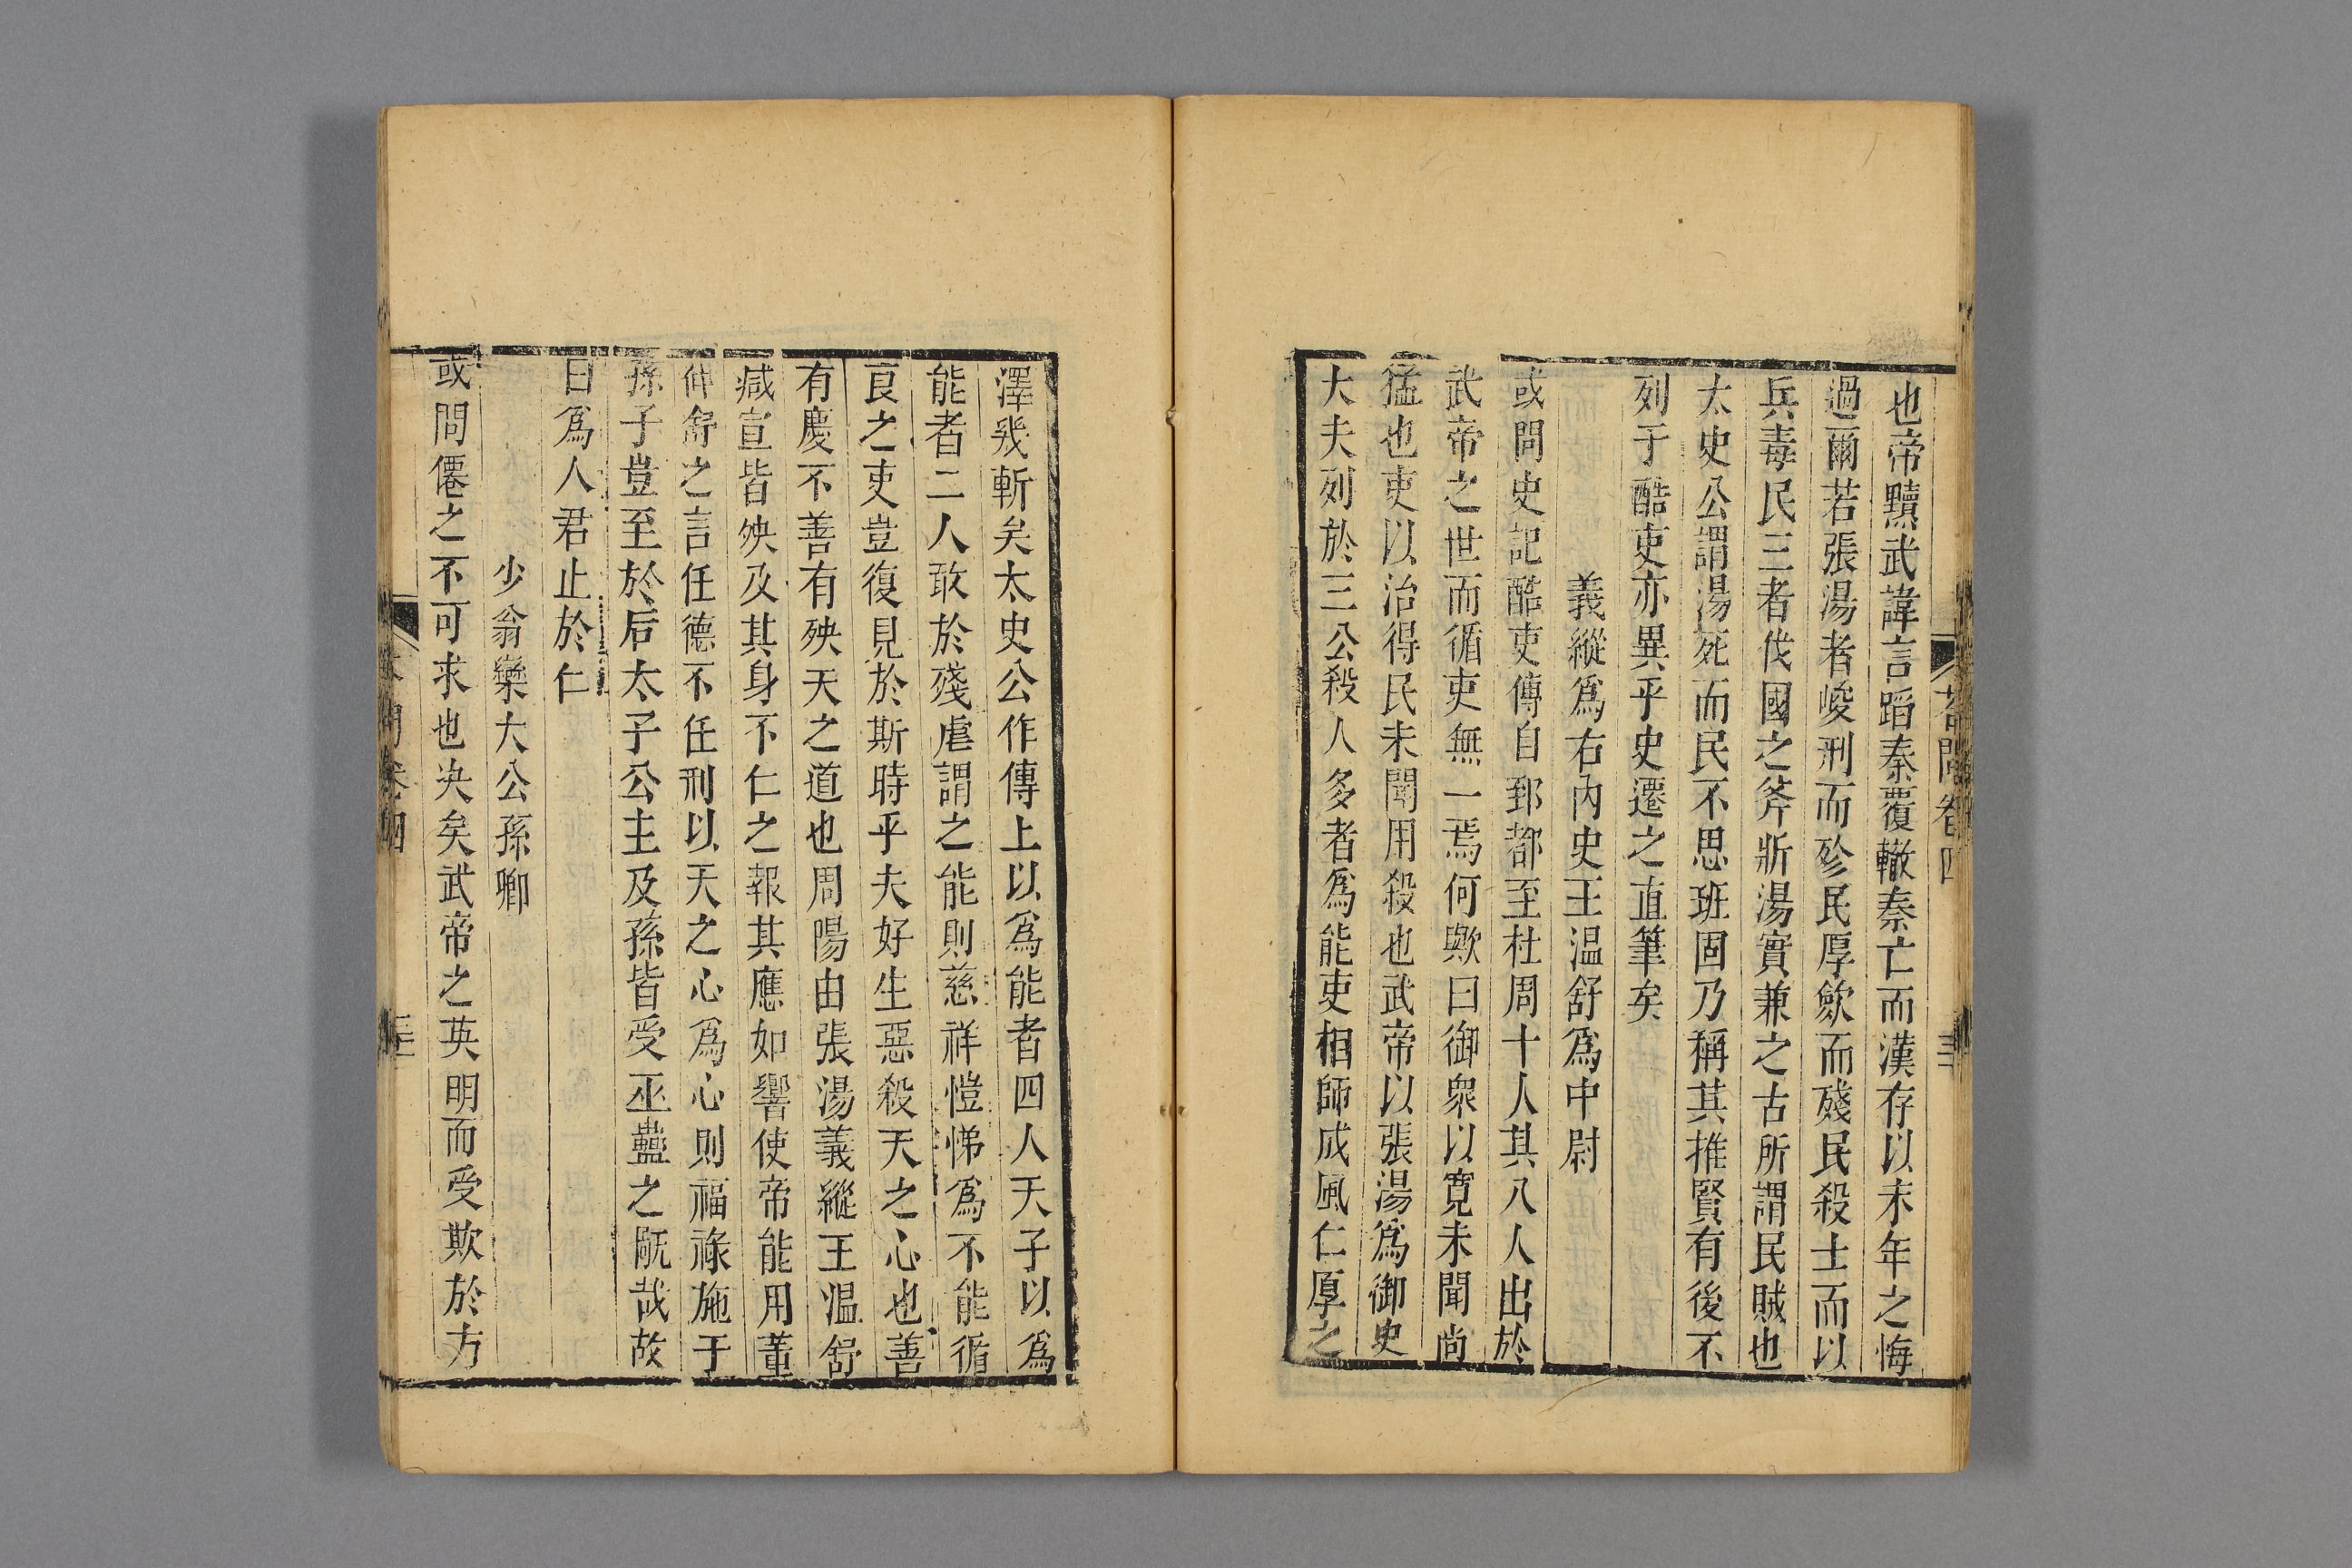 也帝黷武諱言蹈秦覆轍秦亡而漢存以末年之悔
過爾若張湯者峻刑而殄民厚歛而殘民殺士而以
兵毒民三者伐國之斧斨湯實兼之古所謂民賊也
太史公謂湯死而民不思班固乃稱其推賢有後不
列于酷吏亦異乎史遷之直筆矣
義縱爲右內史王温舒爲中尉
或問史記酷吏傳自郅都至杜周十人其八人出於
武帝之世而循吏無一焉何歟曰御衆以寛未聞尚
猛也吏以治得民未聞用殺也武帝以張湯爲御史
大夫列於三公殺人多者爲能吏相師成風仁厚之
澤幾斬矣太史公作傳上以爲能者四人天子以爲
能者二人敢於殘虐謂之能則慈祥愷悌爲不能循
良之吏豈復見於斯時乎夫好生惡殺天之心也善
有慶不善有殃天之道也周陽由張湯義縱王温舒
減宣皆殃及其身不仁之報其應如響使帝能用董
仲舒之言任德不任刑以天之心爲心則福祿施于
孫子豈至於后太子公主及孫皆受巫蠱之戝哉故
曰爲人君止於仁
少翁欒大公孫卿
或問僊之不可求也决矣武帝之英明而受欺於方